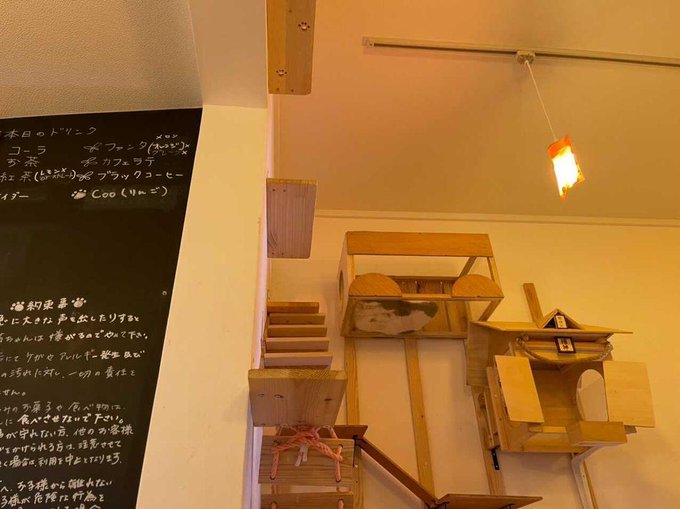 本日のドリンク
メロン
コーラ ファンタ(オレンジ)
グレープ
お茶 カフェラテ
紅茶(レモン ストレート) ブラックコーヒー
イダー Coo(りんご)
約束事
に大きな声を出したりすると
ちゃんは嫌がるのでやめて下さい。
にてケガやアレルギー発生及び
の汚れに対し、一切の責任を
せん。
みのお菓子や食べ物は、
に食べさせないで下さい。
が守れない方、他のお客様
をかけられる方は、注意させて
場合は、利用を中止となります。
お子様から離れない
子様が危険な行為を